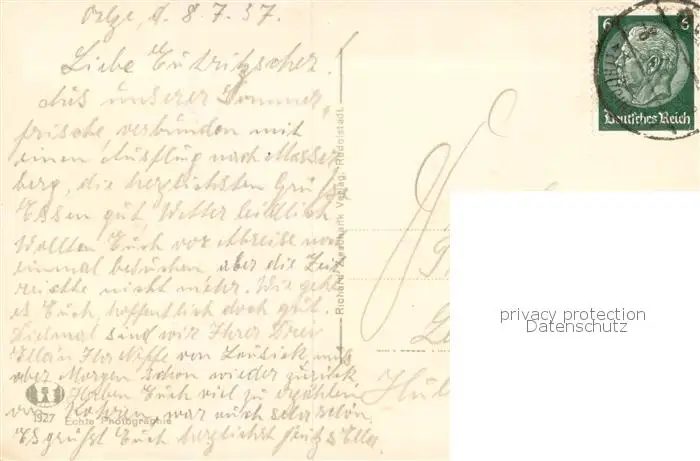 Oelze, d. 8.7.37.
Liebe Eutritzscher!
Aus unserer Sommer-
frische verbunden mit
einem Ausflug nach Masser-
berg, die herzlichsten Grüße
Essen gut, Wetter leidlich
Wollten Euch vor Abreise noch
einmal besuchen, aber die Zeit
reichte nicht mehr. Wie geht
es Euch, hoffentlich doch gut.
Diesmal sind wir Ihrer Drei
Ella u. Ihr Neffe von muß
aber Morgen schon wieder zurück.
Haben Euch viel zu erzählen
von war auch sehr schön.
Es grüßt Euch herzlichst Ella.
1927 Echte Photographie
Richard Zieschank Verlag, Rudolstadt
6 6
Deutsches Reich
privacy protection
Datenschutz